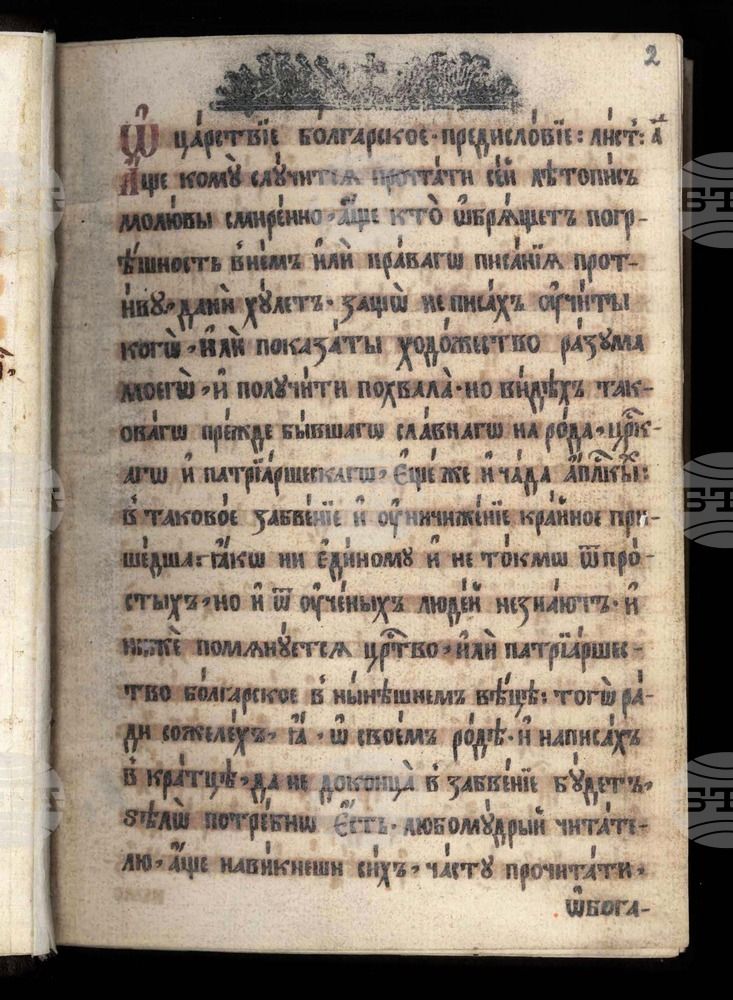 2
Ѡ ца́рствїе бо́лгарское · предисло́вїе : ли́ст : а҃
А҆́ще кому̀ слꙋ́читсѧ прочта́ти се́й лѣ́топись
молю́вы смире́нно , а҆́ще кто̀ ѡ҆брѧ́щетъ погр-
ѣ́шность в не́мъ и҆лѝ пра́вагѡ писа́нїѧ прот-
и́вꙋ , да нѝ хꙋ́летъ · защѡ̀ не писа́хъ ᲂу҆чи́ты
когѡ̀ , и҆лѝ показа́ты ꙋ҆до́жество ра́зꙋма
моегѡ̀ , и҆ полꙋчи́ти похвала̀ · но ви́дѣхъ так-
ова́гѡ пре́жде бы́вшагѡ сла́внагѡ на ро́да , цр҇к-
агѡ и҆ патрїа́ршескагѡ , є҆ще́ же и҆ ча́да а҆пⷭ҇лкы́ :
в таково́е забве́нїе и҆ ᲂу҆ничиже́нїе кра́йное при-
ше́дша : ꙗ҆́кѡ ни є҆ди́номꙋ и҆ не то́кмѡ ѿ про-
сты́хъ , но и҆ ѿ ᲂу҆че́ныхъ люде́й незна́ютъ · и҆
ни́же помѧнꙋ́етсѧ црⷭ҇тво , и҆лѝ патрїа́ршес-
тво бо́лгарское в ны́нѣшнемъ вѣ́цѣ : тогѡ̀ ра́-
ди сожеле́хъ , ꙗ҆̀ , ѡ҆ свое́мъ ро́дѣ · и҆ написа́хъ
в кра́тцѣ , да не доконца̀ в забве́нїе бꙋ́детъ ,
ѕѣлѡ̀ потре́бнѡ є҆́сть · любомꙋ́дрый чита́те-
лю , а҆́ще нави́кнеши си́хъ , ча́стꙋ прочита́ти ,
ѡ҆бога-
БТ
БТ
БТ
БТ
БТ
БТ